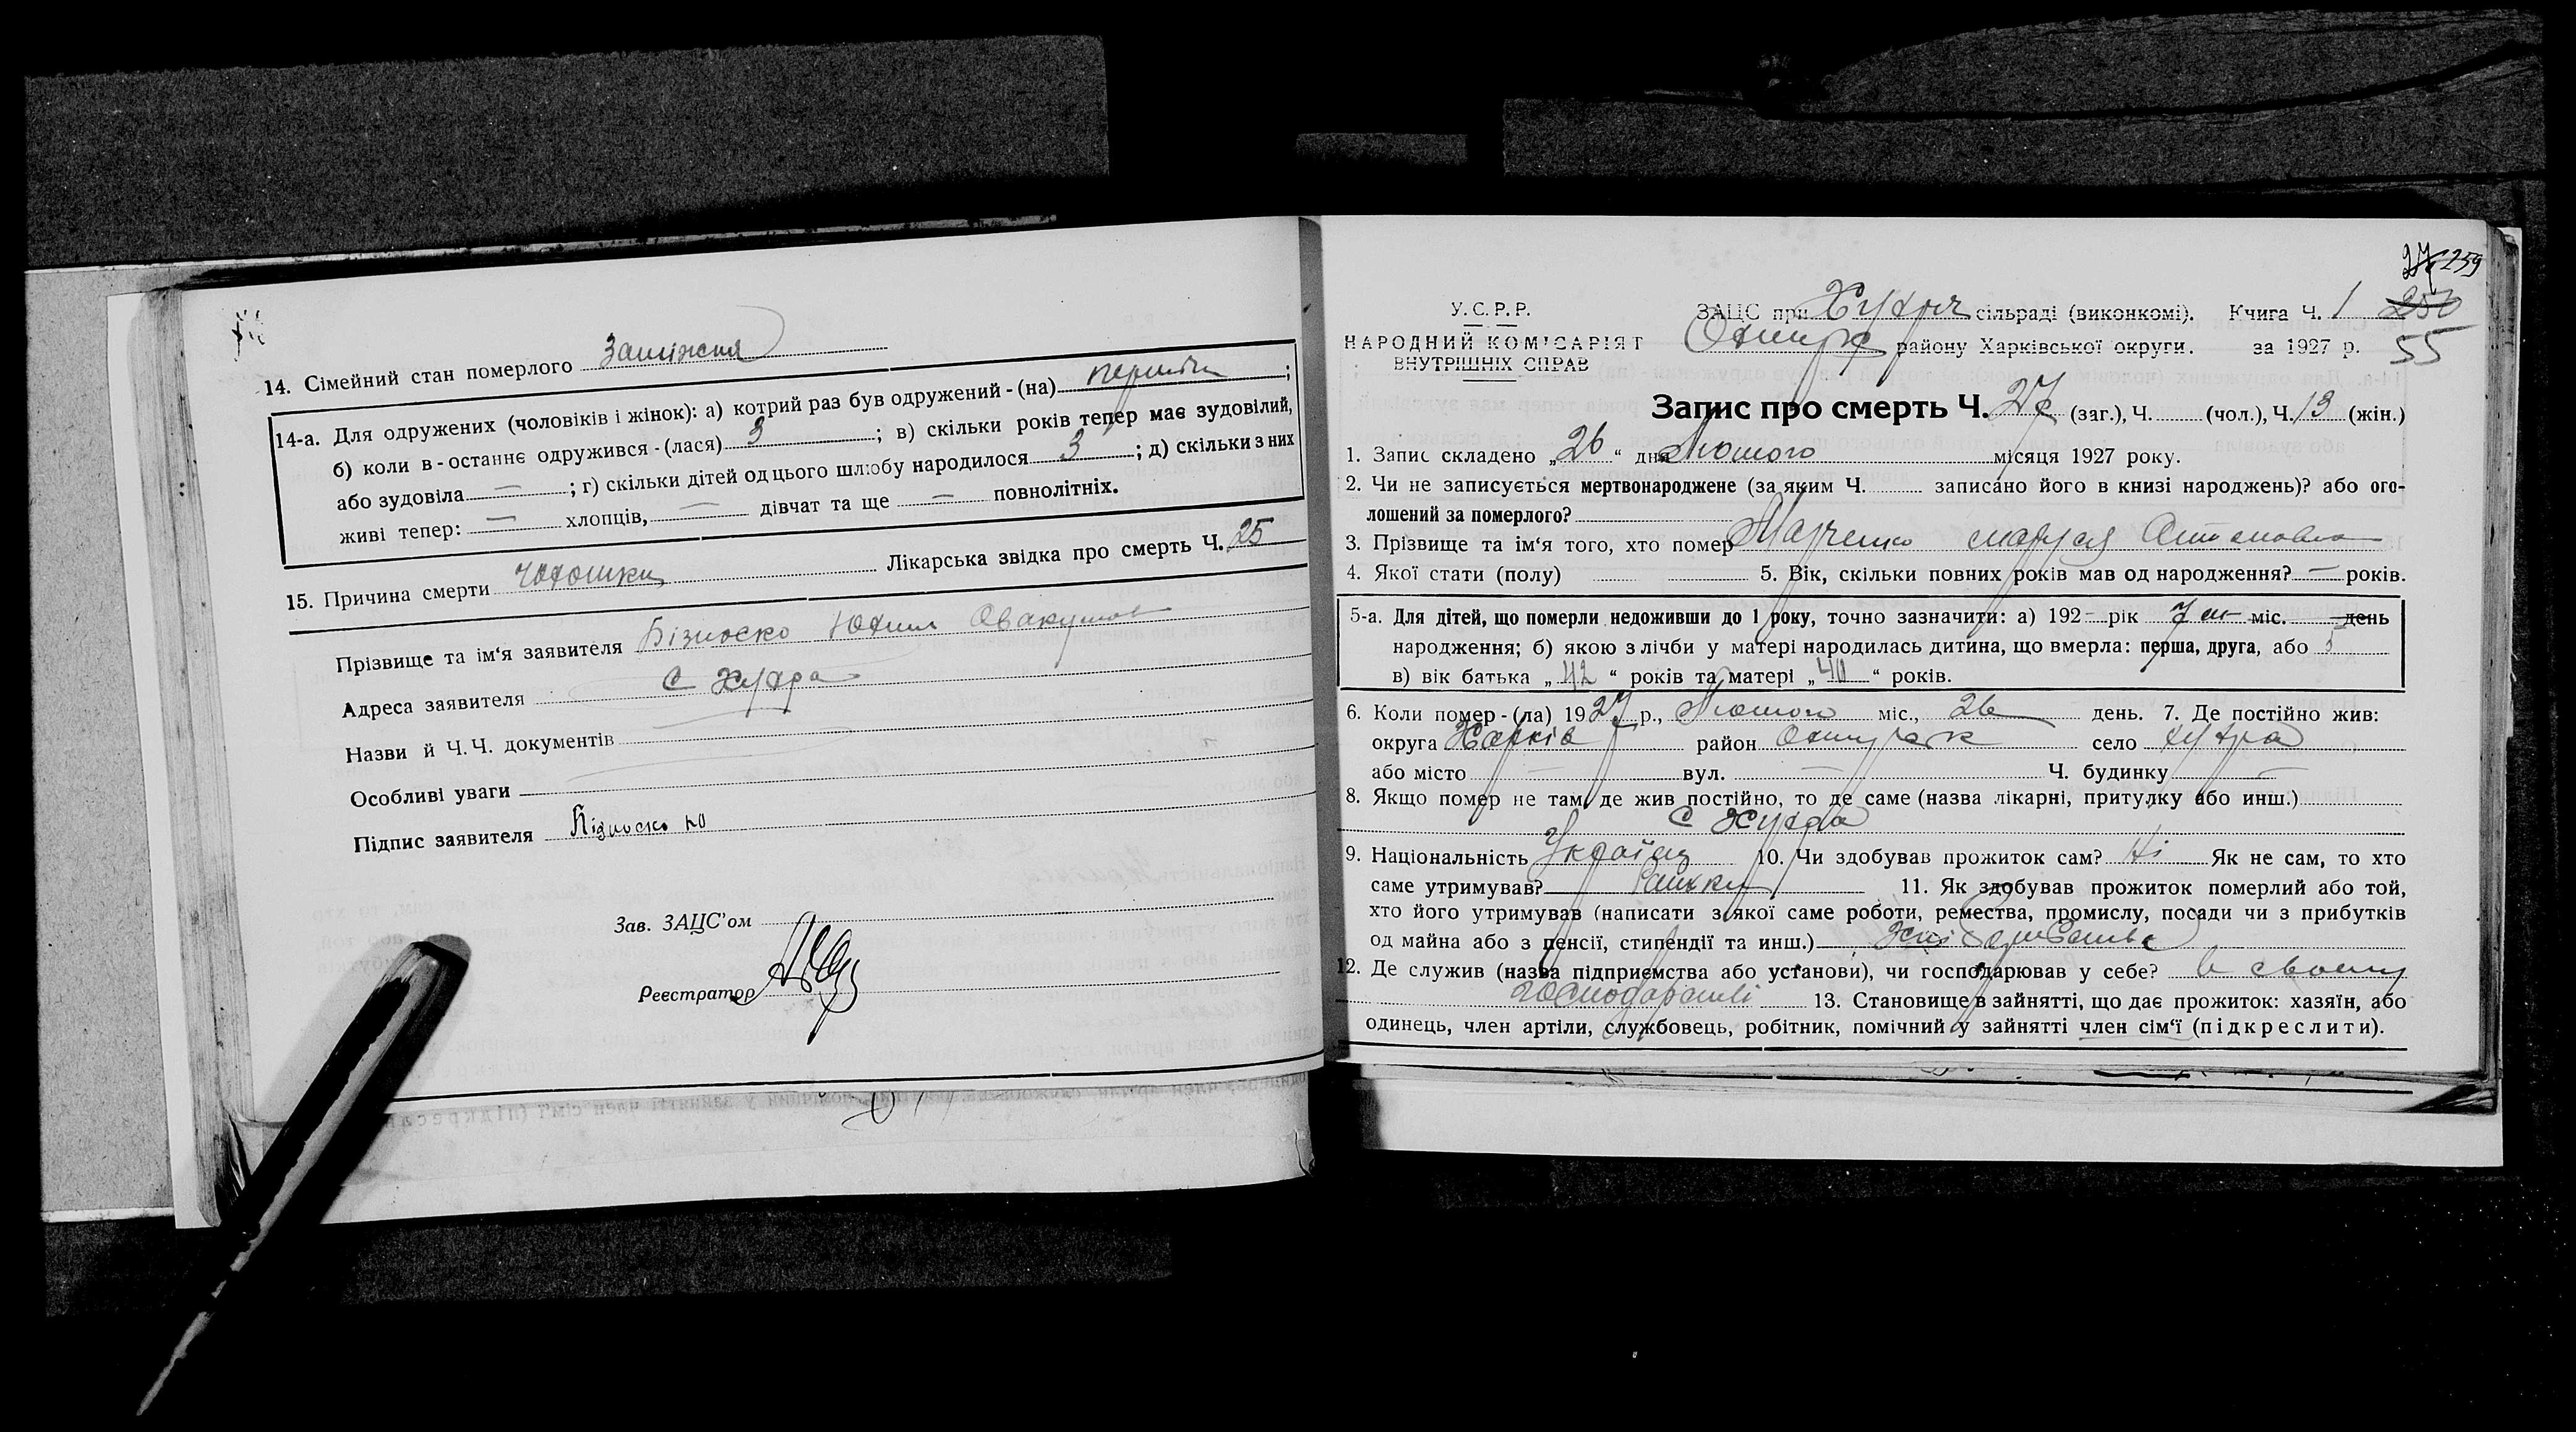 14. Сімейний стан померлого заміжня
14-а. Для одружених (чоловіків і жінок): а) котрий раз був одружений-(на) перший;
б) коли в-останнє одружився-(лася) 3; в) скільки років тепер має зудовілий,
або зудовіла —; г) скільки дітей од цього шлюбу народилося 3; д) скільки з них
живі тепер: — хлопців, — дівчат та ще — повнолітніх.
15. Причина смерти Лікарська звідка про смерть Ч. 25
Прізвище та ім'я заявителя Юхим
Адреса заявителя с Хухра
Назви й Ч.Ч. документів
Особливі уваги
Підпис заявителя
Зав. ЗАЦС'ом
Реєстратор
27 259
У.С.Р.Р.
НАРОДНИЙ КОМІСАРІЯТ
ВНУТРІШНІХ СПРАВ
ЗАЦС при Хухря сільраді (виконкомі). Книга Ч. 1 250
Охтирс району Харківської округи. за 1927 р. 55
Запис про смерть Ч. 27 (заг.), Ч. (чол.), Ч. 13 (жін.)
1. Запис складено „26“ дня Лютого місяця 1927 року.
2. Чи не записується мертвонароджене (за яким Ч. записано його в книзі народжень)? або ого-
лошений за померлого?
3. Прізвище та ім'я того, хто помер Марченко Маруся
4. Якої стати (полу) 5. Вік, скільки повних років мав од народження? — років.
5-а. Для дітей, що померли недоживши до 1 року, точно зазначити: а) 192- рік 7 м міс. — день
народження; б) якою з лічби у матері народилась дитина, що вмерла: перша, друга, або 5
в) вік батька „42“ років та матері „40“ років.
6. Коли помер-(ла) 1927 р., Лютого міс., 26 день. 7. Де постійно жив:
округа Харків район Охтирськ село Хухра
або місто — вул. — Ч. будинку —
8. Якщо помер не там, де жив постійно, то де саме (назва лікарні, притулку або инш.)
с Хухра
9. Національність Україн 10. Чи здобував прожиток сам? Ні Як не сам, то хто
саме утримував? 11. Як здобував прожиток померлий або той,
хто його утримував (написати з якої саме роботи, ремества, промислу, посади чи з прибутків
од майна або з пенсії, стипендії та инш.)
12. Де служив (назва підприємства або установи), чи господарював у себе? в своему
господарстві 13. Становище в зайнятті, що дає прожиток: хазяїн, або
одинець, член артіли, службовець, робітник, помічний у зайнятті член сім'ї (підкреслити).